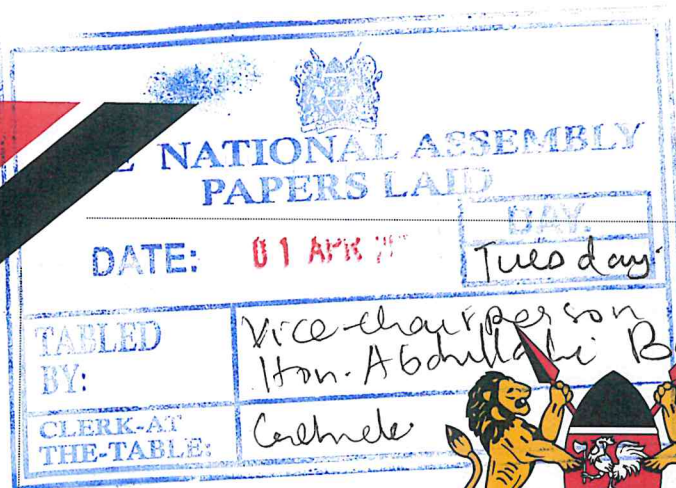 NATIONAL ASSEMBLY
PAPERS LAID
DATE: 01 APR
DAY.
Tuesday
TABLED BY:
Vice-chairperson
Hon. Abdullahi B
CLERK-AT THE-TABLE: